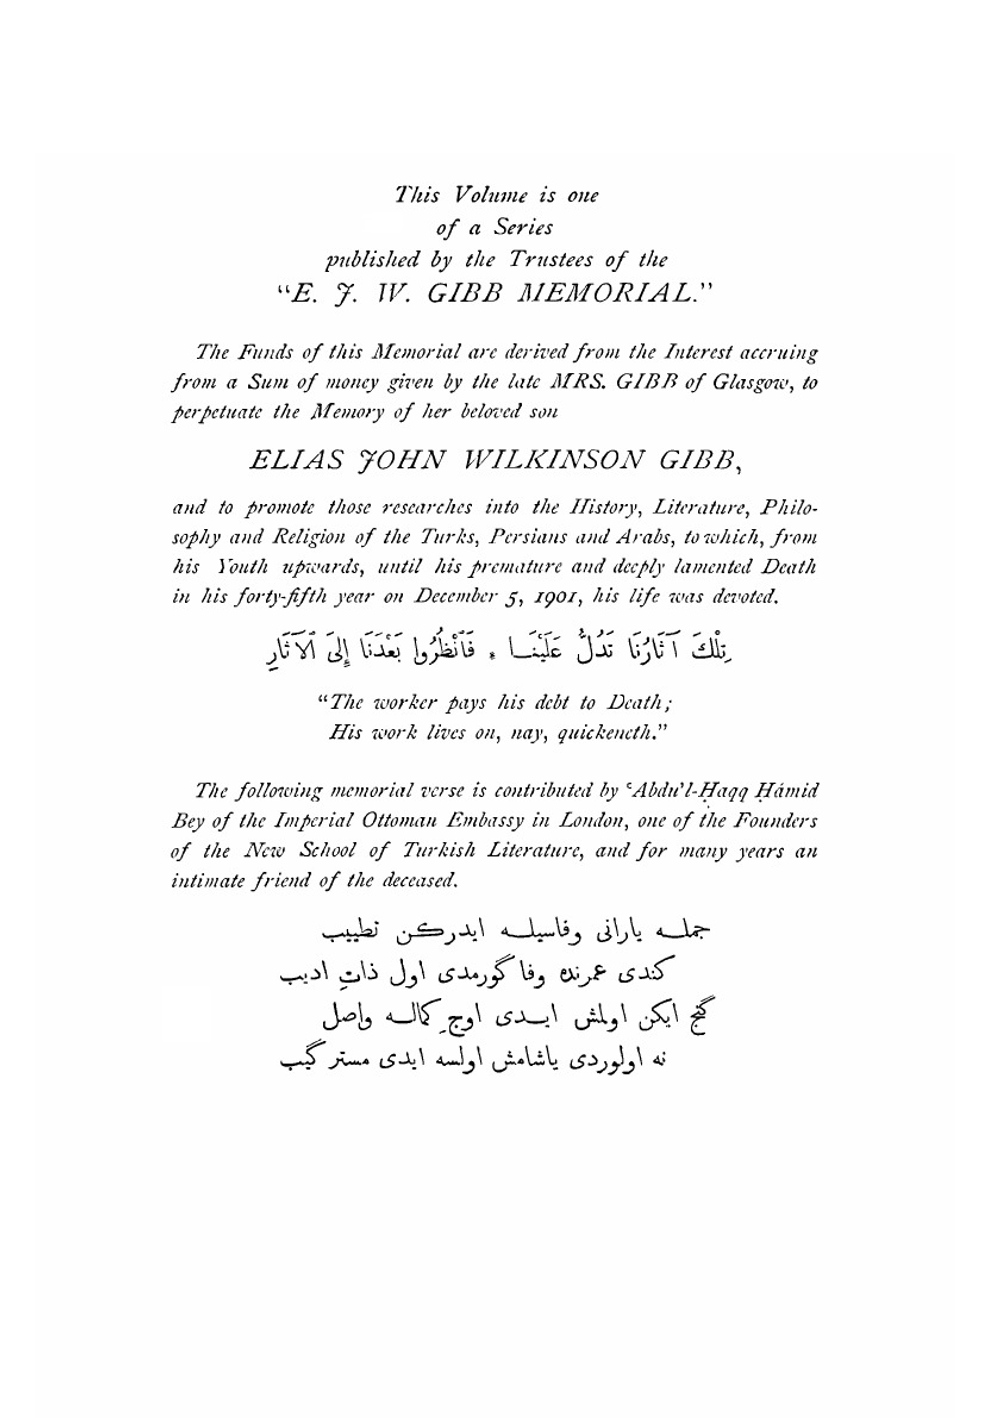 This Volume is one
of a Series
published by the Trustees of the
"E. J. W. GIBB MEMORIAL."
The Funds of this Memorial are derived from the Interest accruing
from a Sum of money given by the late MRS. GIBB of Glasgow, to
perpetuate the Memory of her beloved son
ELIAS JOHN WILKINSON GIBB,
and to promote those researches into the History, Literature, Philo-
sophy and Religion of the Turks, Persians and Arabs, to which, from
his Youth upwards, until his premature and deeply lamented Death
in his forty-fifth year on December 5, 1901, his life was devoted.
تِلْكَ آثَارُنَا تَدُلُّ عَلَيْنَا * فَٱنْظُرُوا بَعْدَنَا إِلَى ٱلْآثَارِ
"The worker pays his debt to Death;
His work lives on, nay, quickeneth."
The following memorial verse is contributed by ʿAbdu'l-Ḥaqq Ḥámid
Bey of the Imperial Ottoman Embassy in London, one of the Founders
of the New School of Turkish Literature, and for many years an
intimate friend of the deceased.
جمله يارانی وفاسيله ايدركن تطييب
كندی عمرنده وفا گورمدی اول ذاتِ اديب
گنج ايكن اولمش ايدی اوجِ كماله واصل
نه اولوردی ياشامش اولسه ايدی مستر گيب